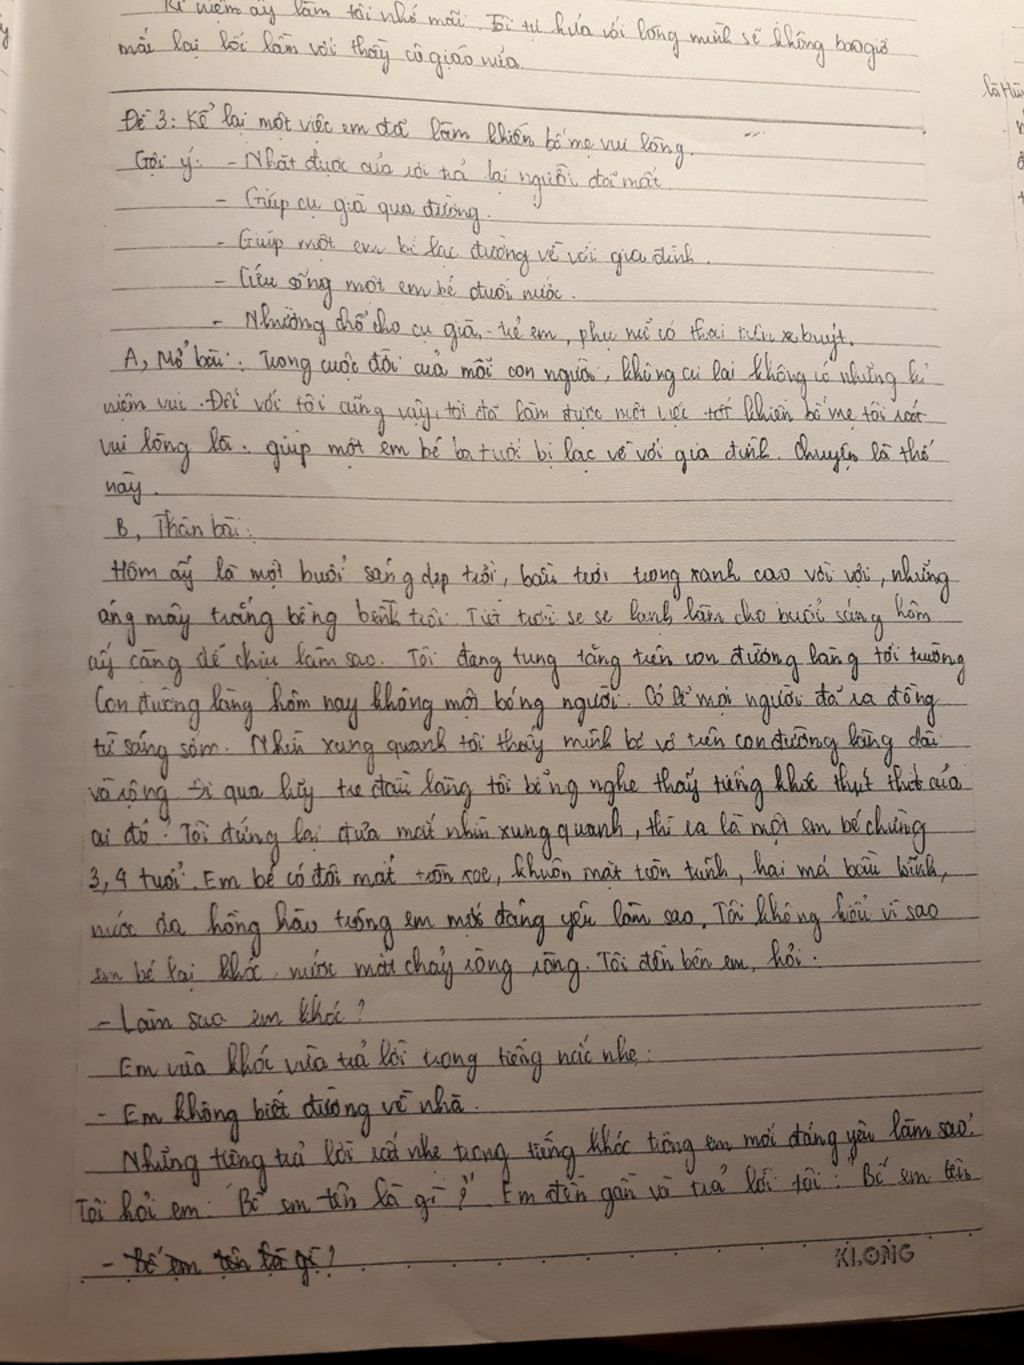 Kỉ niệm ấy làm tôi nhớ mãi. Tôi tự hứa với lòng mình sẽ không bao giờ
mắc lại lỗi lầm với thầy cô giáo nữa.
Đề 3: Kể lại một việc em đã làm khiến bố mẹ vui lòng.
Gợi ý: - Nhặt được của rơi trả lại người đã mất
- Giúp cụ già qua đường.
- Giúp một em bé lạc đường về với gia đình.
- Cứu sống một em bé đuối nước.
- Nhường chỗ cho cụ già, trẻ em, phụ nữ có thai trên xe buýt.
A, Mở bài: Trong cuộc đời của mỗi con người, không ai lại không có những kỉ
niệm vui. Đối với tôi cũng vậy, tôi đã làm được một việc tốt khiến bố mẹ tôi rất
vui lòng là: giúp một em bé ba tuổi bị lạc về với gia đình. Chuyện là thế
này.
B, Thân bài:
Hôm ấy là một buổi sáng đẹp trời, bầu trời trong xanh cao vời vợi, những
áng mây trắng bồng bềnh trôi. Tiết trời se se lạnh làm cho buổi sáng hôm
ấy càng dễ chịu làm sao. Tôi đang tung tăng trên con đường làng tới trường
Con đường làng hôm nay không một bóng người. Có lẽ mọi người đã ra đồng
từ sáng sớm. Nhìn xung quanh tôi thấy mình bé vô trên con đường làng dài
và rộng. Đi qua lũy tre đầu làng tôi bỗng nghe thấy tiếng khóc thút thít của
ai đó. Tôi đứng lại đưa mắt nhìn xung quanh, thì ra là một em bé chừng
3, 4 tuổi. Em bé có đôi mắt tròn xoe, khuôn mặt tròn trĩnh, hai má bầu bĩnh,
nước da hồng hào trông em mới đáng yêu làm sao. Tôi không hiểu vì sao
em bé lại khóc, nước mắt chảy ròng ròng. Tôi đến bên em, hỏi:
- Làm sao em khóc?
Em vừa khóc vừa trả lời trong tiếng nấc nhẹ:
- Em không biết đường về nhà.
Những tiếng trả lời rất nhẹ trong tiếng khóc trông em mới đáng yêu làm sao!
Tôi hỏi em: "Bố em tên là gì?" Em đến gần và trả lời tôi: "Bố em tên
- Bố em tên là gì?
KLONG